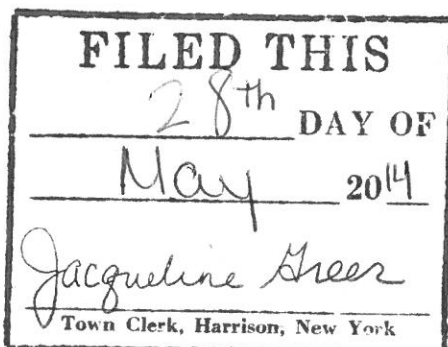 FILED THIS
28th DAY OF
May 2014
Jacqueline Greer
Town Clerk, Harrison, New York